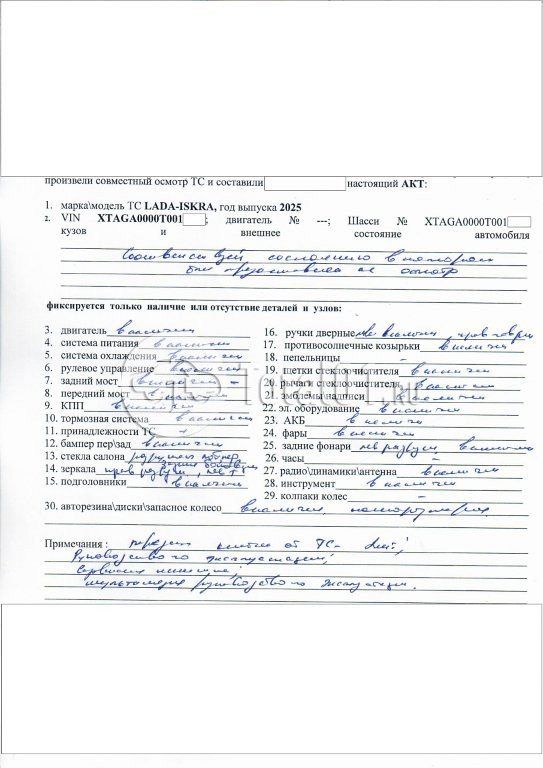 произвели совместный осмотр ТС и составили настоящий АКТ:
1. марка\модель ТС LADA-ISKRA, год выпуска 2025
2. VIN XTAGA0000T001 ; двигатель № ---; Шасси № XTAGA0000T001
кузов и внешнее состояние автомобиля
Соответствует состоянию в котором
был предоставлен на осмотр
фиксируется только наличие или отсутствие деталей и узлов:
3. двигатель в наличии
4. система питания в наличии
5. система охлаждения в наличии
6. рулевое управление в наличии
7. задний мост в наличии -
8. передний мост в наличии
9. КПП в наличии
10. тормозная система в наличии
11. принадлежности ТС +
12. бампер пер\зад в наличии
13. стекла салона
14. зеркала
15. подголовники в наличии
16. ручки дверные
17. противосолнечные козырьки в наличии
18. пепельницы -
19. щетки стеклоочистителя в наличии
20. рычаги стеклоочистителя в наличии
21. эмблемы надписи в наличии
22. эл. оборудование в наличии
23. АКБ в наличии
24. фары в наличии
25. задние фонари
26. часы -
27. радио\динамики\антенна в наличии
28. инструмент в наличии
29. колпаки колес -
30. авторезина\диски\запасное колесо в наличии,
Примечания : от ТС-
Руководство по эксплуатации;
Сервисная книжка;
мультимедиа руководство по эксплуатации.
Total01.ru